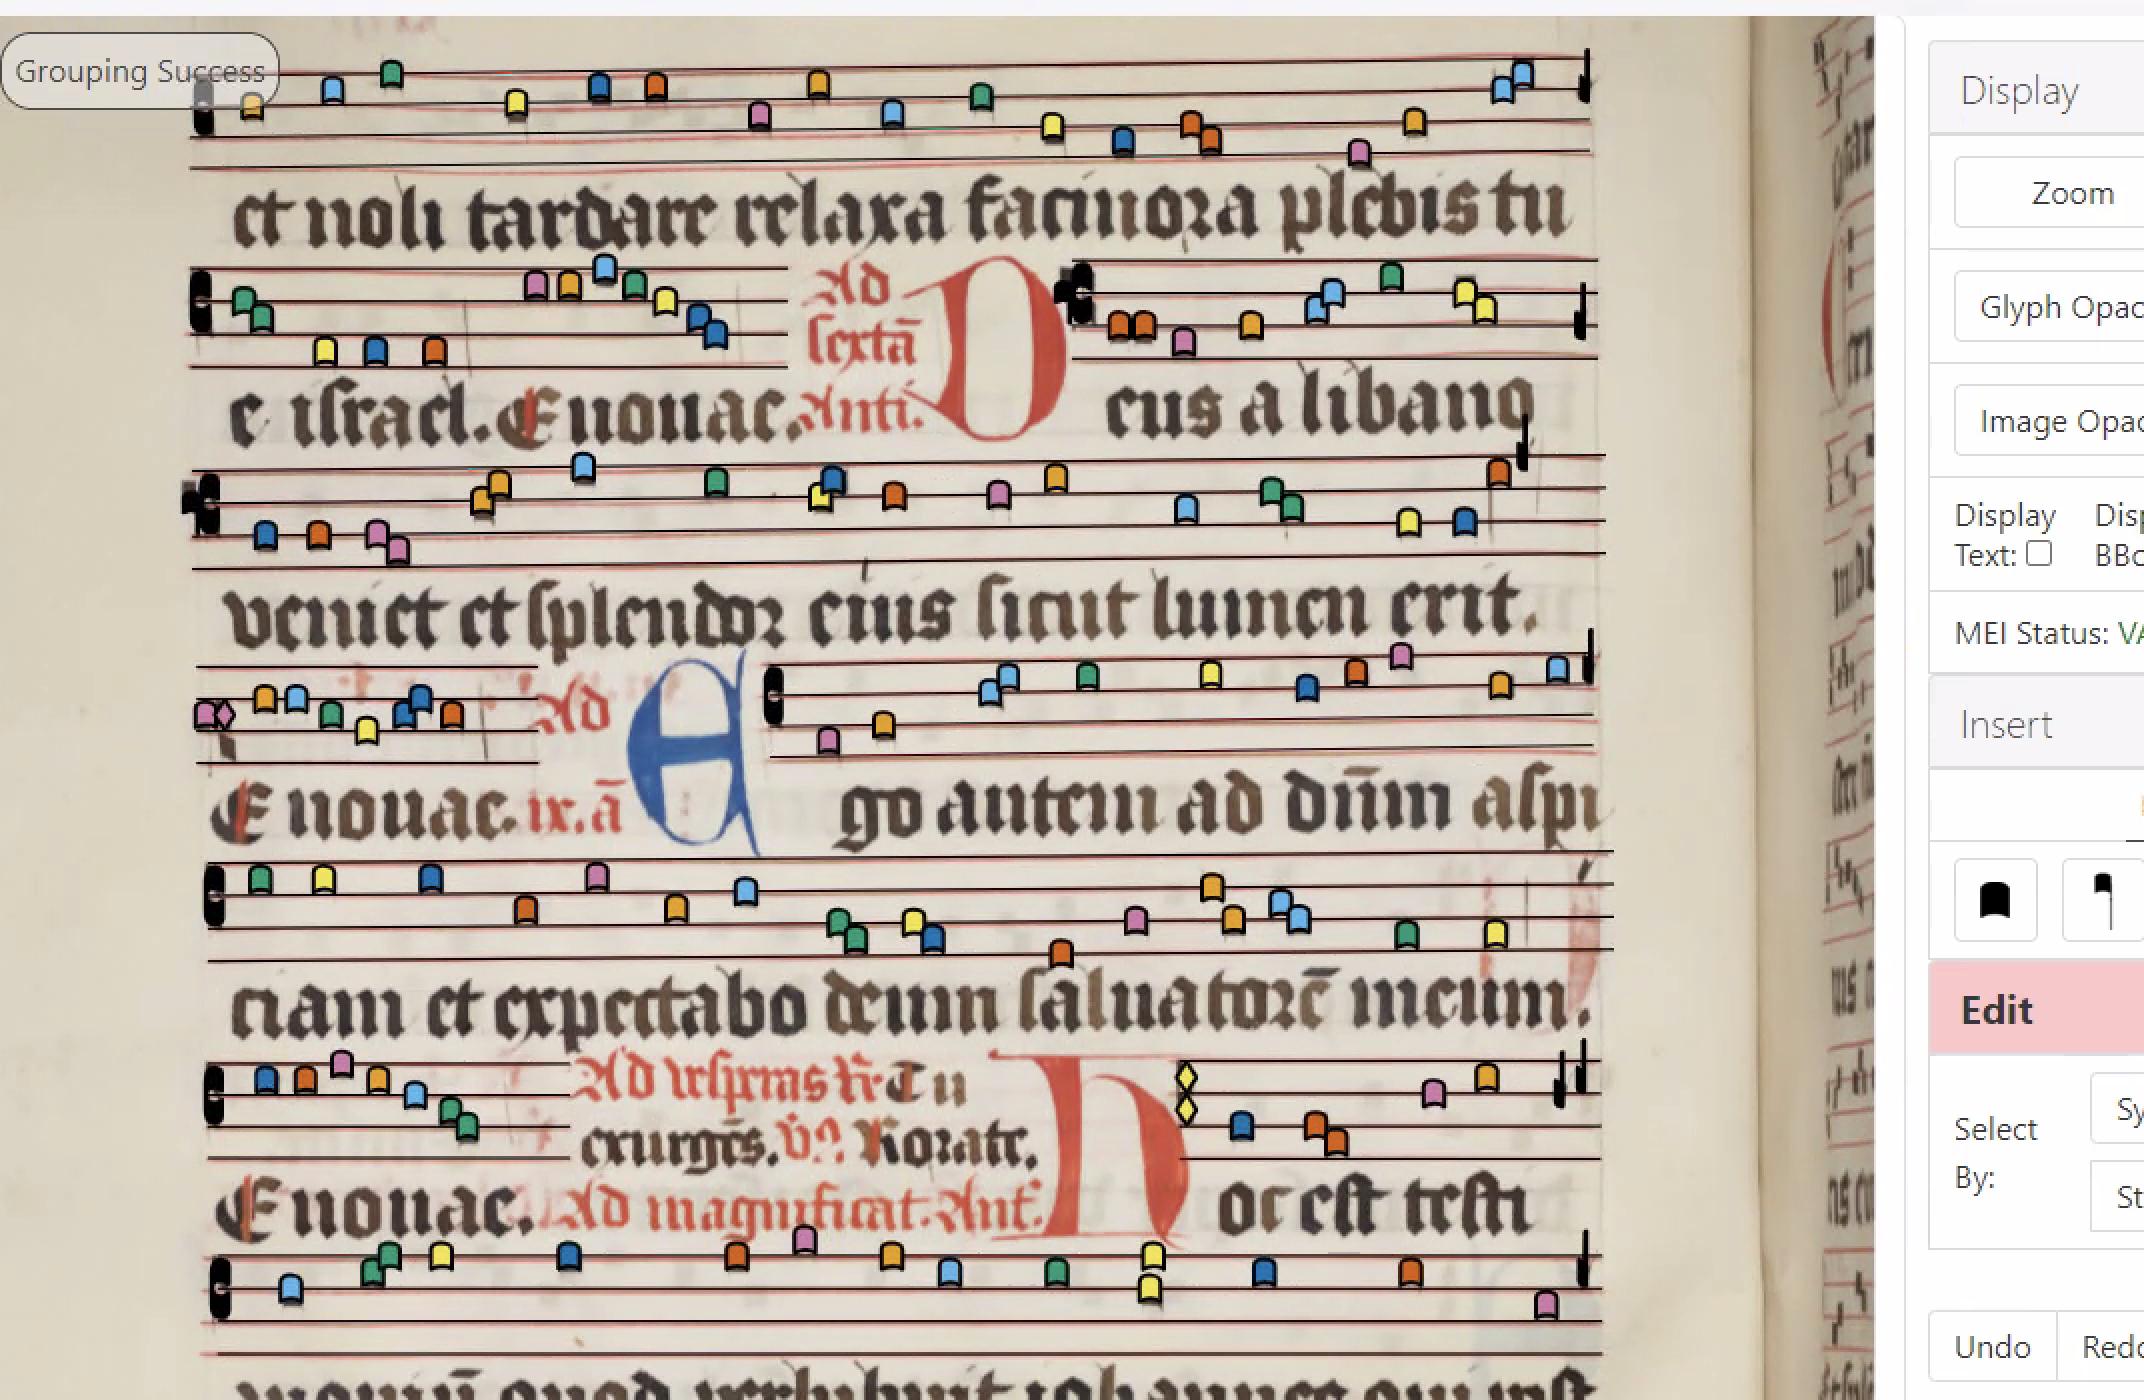 Grouping Success
et noli tardare relaxa facinora plebis tu
Ad
sextā
Anti.
e israel. Enouae.
D eus a libano
veniet et splendor eius sicut lumen erit.
Enouae. Ad ix. ā
Ego autem ad dn̄m aspi
ciam et expectabo deum saluatorē meum.
Enouae.
Tu
exurgēs. Rorate.
Ad magnificat. Ant.
Hoc est testi
Display
Zoom
Glyph Opac
Image Opac
Display Text:
Disp BBo
MEI Status: VA
Insert
Edit
Select By:
Sy
St
Undo
Redo